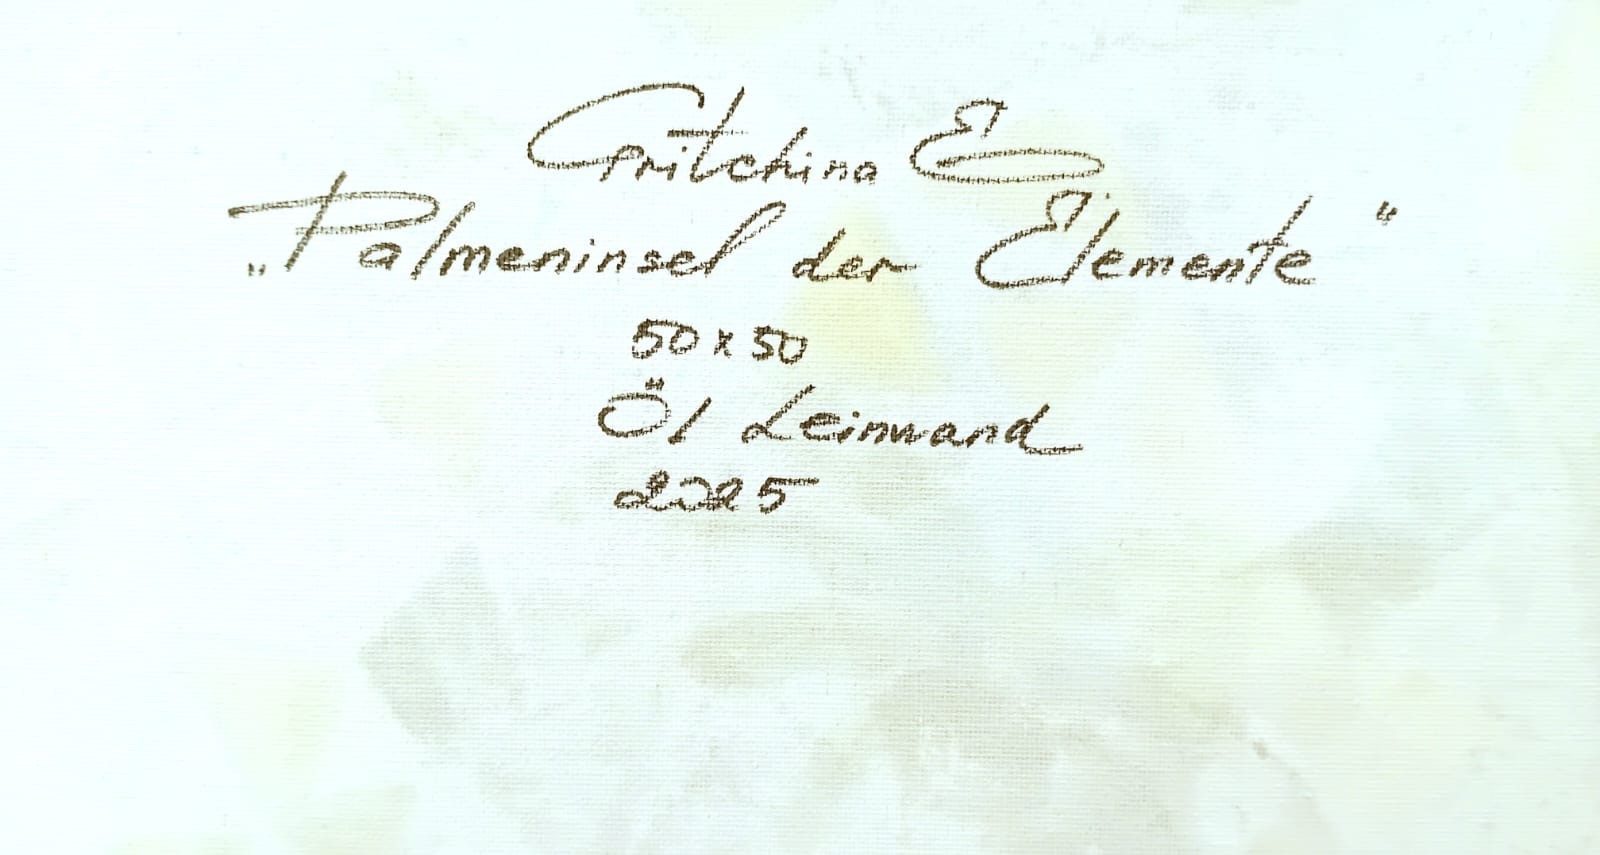 Gritchina E
„Palmeninsel der Elemente“
50 x 50
Öl Leinwand
2025